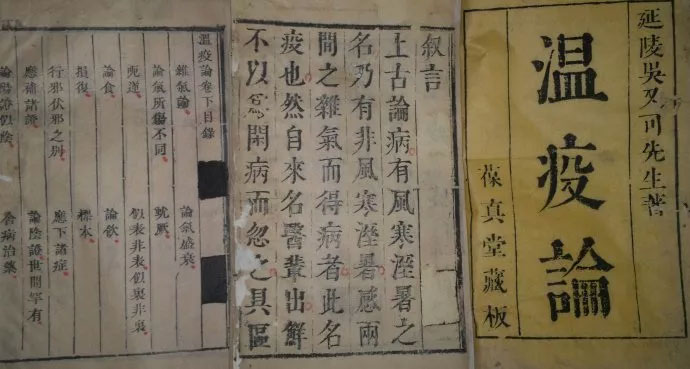 延陵吳又可先生著
温疫論
葆真堂藏板
叙言
上古論病有風寒溼暑之
名乃有非風寒溼暑感兩
間之雜氣而得病者此名
疫也然自來名醫輩出鮮
不以爲閑病而忽之具區
温疫論卷下目錄
雜氣論 論氣盛衰
論氣所傷不同 蚘厥
呃逆 似表非表似裏非裏
論食 論飲
損復 標本
行邪伏邪之别 應下諸症
應補諸證 論陰證世間罕有
論陽證似陰 舍病治藥